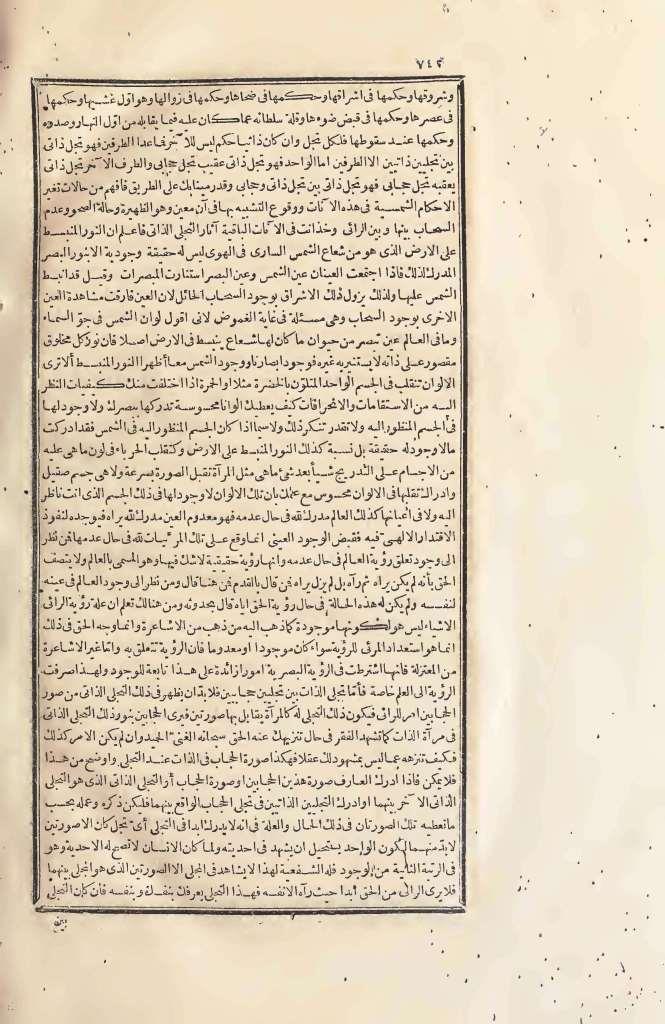 ٧٤٢
وشروقها وحكمها فى اشراقها وحكمها فى ضحاها وحكمها فى زوالها وهو اول عشيها وحكمها
فى عصرها وحكمها فى قبض ضوءها وقلة سلطانه عما كان عليه فيما يقابله من اول النهار وصدوه
وحكمها عند سقوطها فلكل تجل وان كان ذاتيا حكم ليس للآخر فما عدا الطرفين فهو تجل ذاتى
بين تجليين ذاتيين الا الطرفين اما الواحد فهو تجل ذاتى عقيب تجل حجابى والطرف الآخر تجل ذاتى
يعقبه تجل حجابى فهو تجل ذاتى بين تجل ذاتى وحجابى وقد رمينا بك على الطريق فافهم من حالات تغير
الاحكام الشمسية فى هذه الآنات ووقوع التشبيه بها فى آن معين وهو الظهيرة وحالة الصحو وعدم
السحاب بينها وبين الرائى وخذ انت فى الآنات الباقية آثار التجلى الذاتى فاعلم ان النور المنبسط
على الارض الذى هو من شعاع الشمس السارى فى الهوى ليس له حقيقة وجودية الا بنور البصر
المدرك لذلك فاذا اجتمعت العينان عين الشمس وعين البصر استنارت المبصرات وقيل قد انبسط
الشمس عليها ولذلك يزول ذلك الاشراق بوجود السحاب الحائل لان العين فارقت مشاهدة العين
الاخرى بوجود السحاب وهى مسئلة فى غاية الغموض لانى اقول لو ان الشمس فى جو السماء
وما فى العالم عين تبصر من حيوان ما كان لها شعاع ينبسط فى الارض اصلا فان نور كل مخلوق
مقصور على ذاته لا يستنير به غيره فوجود ابصارنا ووجود الشمس معا أظهرا النور المنبسط ألا ترى
الالوان تتقلب فى الجسم الواحد المتلون بالخضرة مثلا او الحمرة اذا اختلفت منك كيفيات النظر
اليه من الاستقامات والانحرافات كيف يعطيك الوانا محسوسة تدركها ببصرك ولا وجود لها
فى الجسم المنظور اليه ولا تقدر تنكر ذلك ولا سيما اذا كان الجسم المنظور اليه فى الشمس فقد ادركت
ما لا وجود له حقيقة بل نسبة كذلك النور المنبسط على الارض وكتقلب الحرباء فى لون ما هى عليه
من الاجسام على التدريج شيأ بعد شئ ما هى مثل المرآة تقبل الصورة بسرعة ولا هى جسم صقيل
وادراك تقلبها فى الالوان محسوس مع علمك بان تلك الالوان لا وجود لها فى ذلك الجسم الذى انت ناظر
اليه ولا فى اعيانها كذلك العالم مدرك لله فى حال عدمه فهو معدوم العين مدرك لله يراه فيوجده لنفوذ
الاقتدار الالهى فيه ففيض الوجود العينى انما وقع على تلك المرئيات لله فى حال عدمها فمن نظر
الى وجود تعلق رؤية العالم فى حال عدمه وانها رؤية حقيقية لا شك فيها وهو المسمى بالعالم ولا يتصف
الحق بأنه لم يكن يراه ثم رآه بل لم يزل يراه فمن قال بالقدم فمن هنا قال ومن نظر الى وجود العالم فى عينه
لنفسه ولم يكن له هذه الحالة فى حال رؤية الحق اياه قال بحدوثه ومن هنالك تعلم ان علة رؤية الرائى
الاشياء ليس هو لكونها موجودة كما ذهب اليه من ذهب من الاشاعرة وانما وجه الحق فى ذلك
انما هو استعداد المرئى للرؤية سواء كان موجودا او معدوما فان الرؤية تتعلق به واما غير الاشاعرة
من المعتزلة فانها اشترطت فى الرؤية البصرية امورا زائدة على هذا تابعة للوجود ولهذا صرفت
الرؤية الى العلم خاصة فأما تجلى الذات بين تجليين حجابيين فلا بد أن يظهر فى ذلك التجلى الذاتى من صور
الحجابين امر للرائى فيكون ذلك التجلى له كالمرآة يقابل بها صورتين فيرى الحجابين بنور ذلك التجلى الذاتى
فى مرآة الذات كما تشهد الفقر فى حال تنزيهك عنه الحق سبحانه الغنى الحميد وان لم يكن الامر كذلك
فكيف تنزهه عما ليس بمشهود لك عقلا فهكذا صورة الحجاب فى الذات عند التجلى واوضح من هذا
فلا يمكن فاذا ادرك العارف صورة هذين الحجابين او صورة الحجاب أو التجلى الذاتى الذى هو التجلى
الذاتى الآخر بينهما او ادرك التجليين الذاتيين فى تجلى الحجاب الواقع بينهما فليكن ذكره وعمله بحسب
ما تعطيه تلك الصورتان فى ذلك الحال والعلة فى انه لا يدرك ابدا فى التجلى أى تجل كان الا صورتين
لا بد منهما ليكون الواحد يستحيل ان يشهد فى احديته ولما كان الانسان لا تصح له الاحدية وهو
فى الرتبة الثانية من الوجود فله الشفعية لهذا لا يشاهد فى التجلى الا الصورتين الذى هو المتجلى بينهما
فلا يرى الرائى من الحق ابدا حيث رآه الا نفسه فهذا التجلى يعرفك بنفسك وبنفسه فان كان التجلى
بين